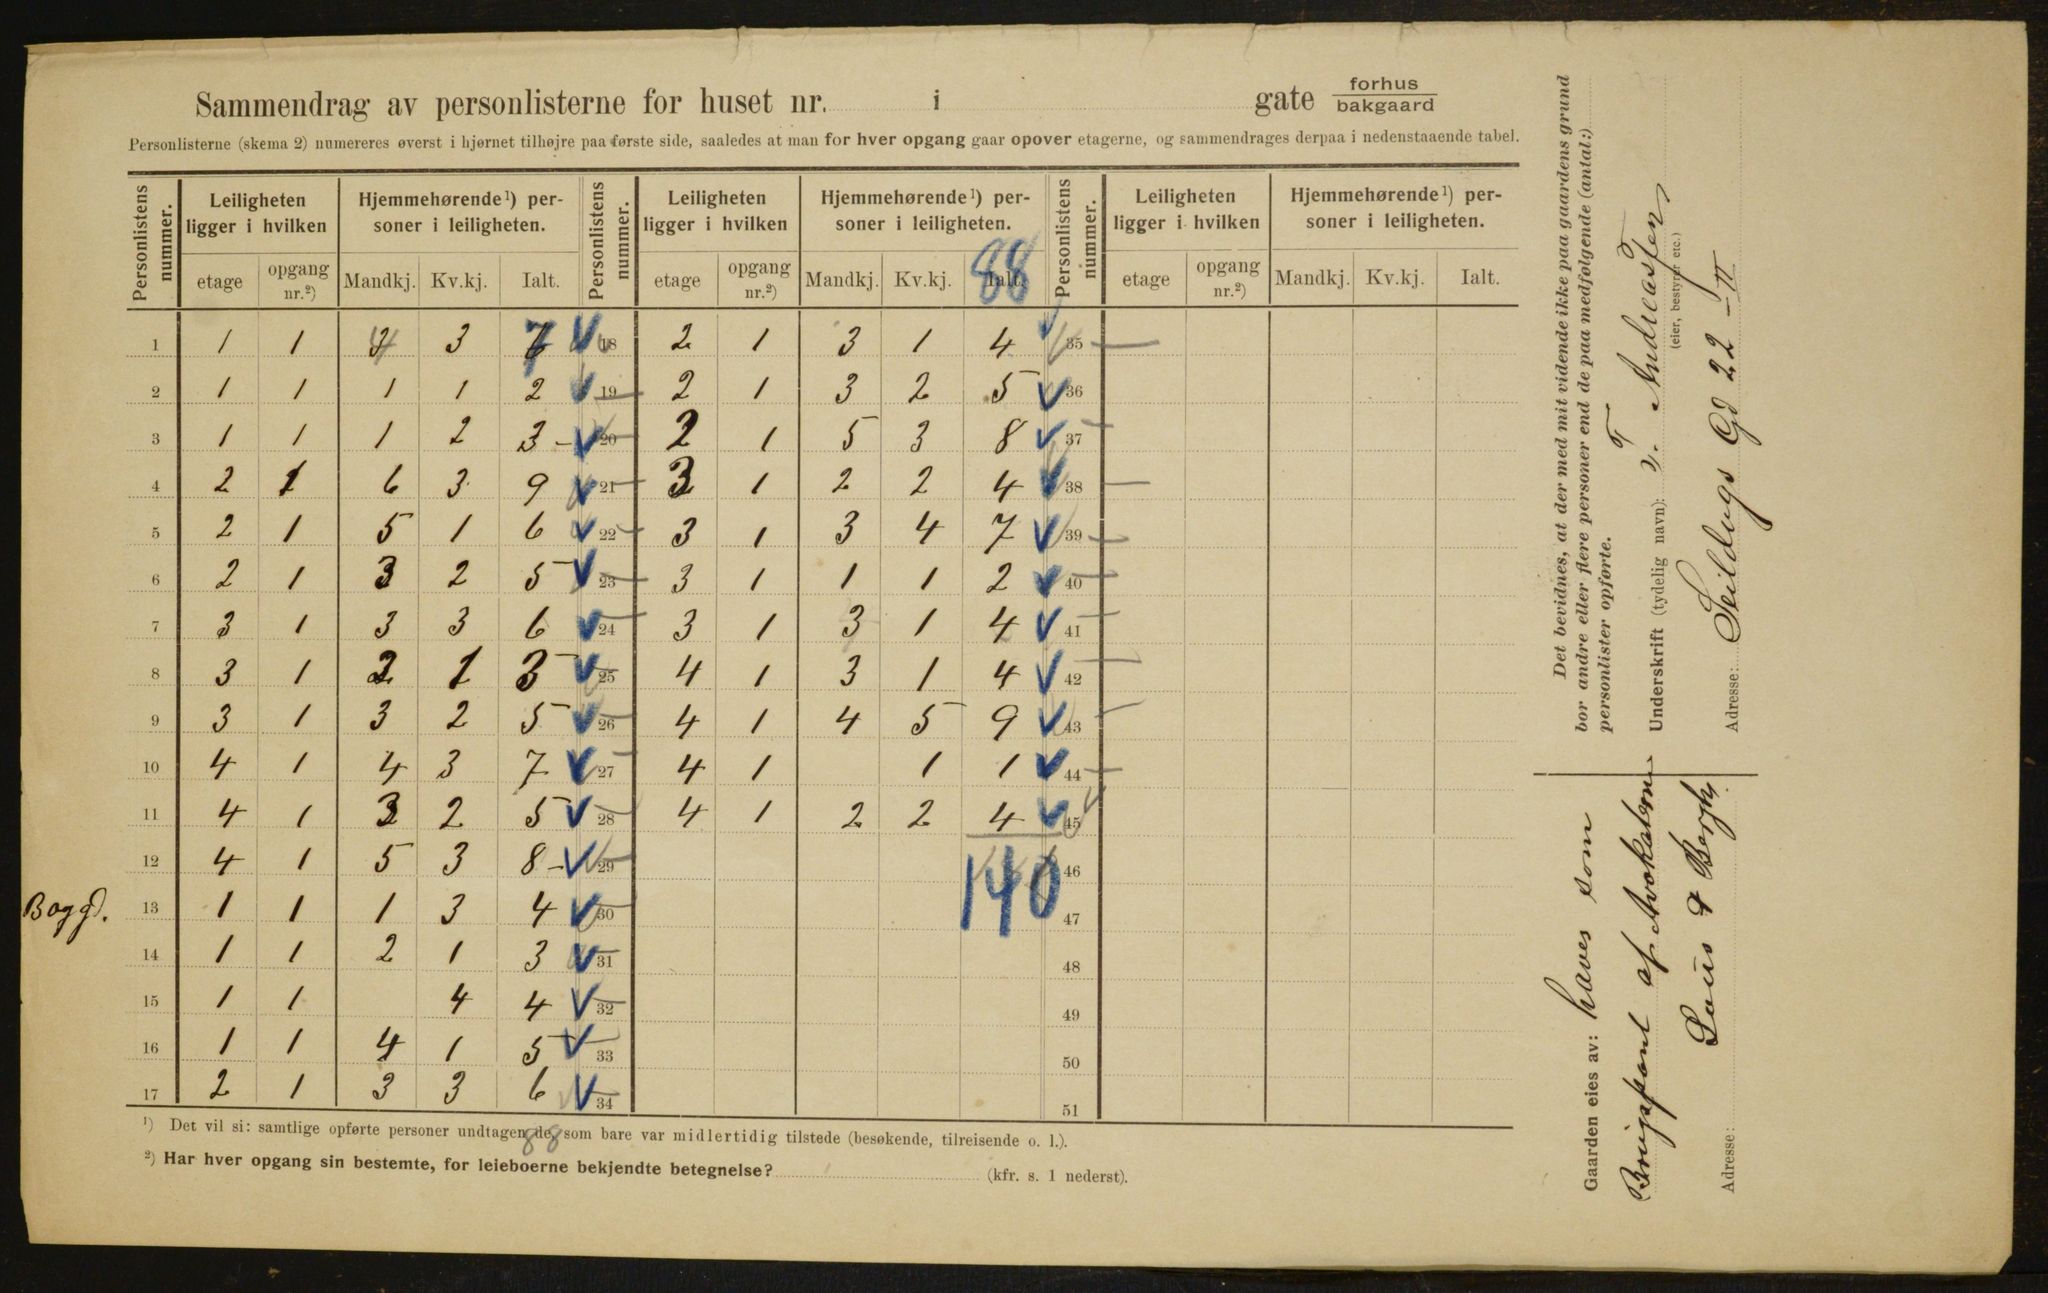 Sammendrag av personlisterne for huset nr. i gate forhus
bakgaard
Personlisterne (skema 2) numereres øverst i hjørnet tilhøjre paa første side, saaledes at man for hver opgang gaar opover etagerne, og sammendrages derpaa i nedenstaaende tabel.
Personlistens nummer. Leiligheten ligger i hvilken Hjemmehørende¹) personer i leiligheten. Personlistens nummer. Leiligheten ligger i hvilken Hjemmehørende¹) personer i leiligheten. Personlistens nummer. Leiligheten ligger i hvilken Hjemmehørende¹) personer i leiligheten.
88
etage opgang nr.²) Mandkj. Kv.kj. Ialt. etage opgang nr.²) Mandkj. Kv.kj. Ialt. etage opgang nr.²) Mandkj. Kv.kj. Ialt.
1 1 1 4 3 7 18 2 1 3 1 4 35
2 1 1 1 1 2 19 2 1 3 2 5 36
3 1 1 1 2 3 20 2 1 5 3 8 37
4 2 1 6 3 9 21 3 1 2 2 4 38
5 2 1 5 1 6 22 3 1 3 4 7 39
6 2 1 3 2 5 23 3 1 1 1 2 40
7 3 1 3 3 6 24 3 1 3 1 4 41
8 3 1 2 1 3 25 4 1 3 1 4 42
9 3 1 3 2 5 26 4 1 4 5 9 43
10 4 1 4 3 7 27 4 1 1 1 44
11 4 1 3 2 5 28 4 1 2 2 4 45
12 4 1 5 3 8 29 46
140
Baggd. 13 1 1 1 3 4 30 47
14 1 1 2 1 3 31 48
15 1 1 4 4 32 49
16 1 1 4 1 5 33 50
17 2 1 3 3 6 34 51
88
¹) Det vil si: samtlige opførte personer undtagen de, som bare var midlertidig tilstede (besøkende, tilreisende o. l.).
²) Har hver opgang sin bestemte, for leieboerne bekjendte betegnelse? (kfr. s. 1 nederst).
Det bevidnes, at der med mit vidende ikke paa gaardens grund
bor andre eller flere personer end de paa medfølgende (antal:)
personlister opførte.
Underskrift (tydelig navn): T. Andreassen
(eier, bestyrer etc.)
Adresse: Seildugs Gd 22 - II
Gaarden eies av: haves som
Brugspant af Advokaterne
Louis & Bergh
Adresse: